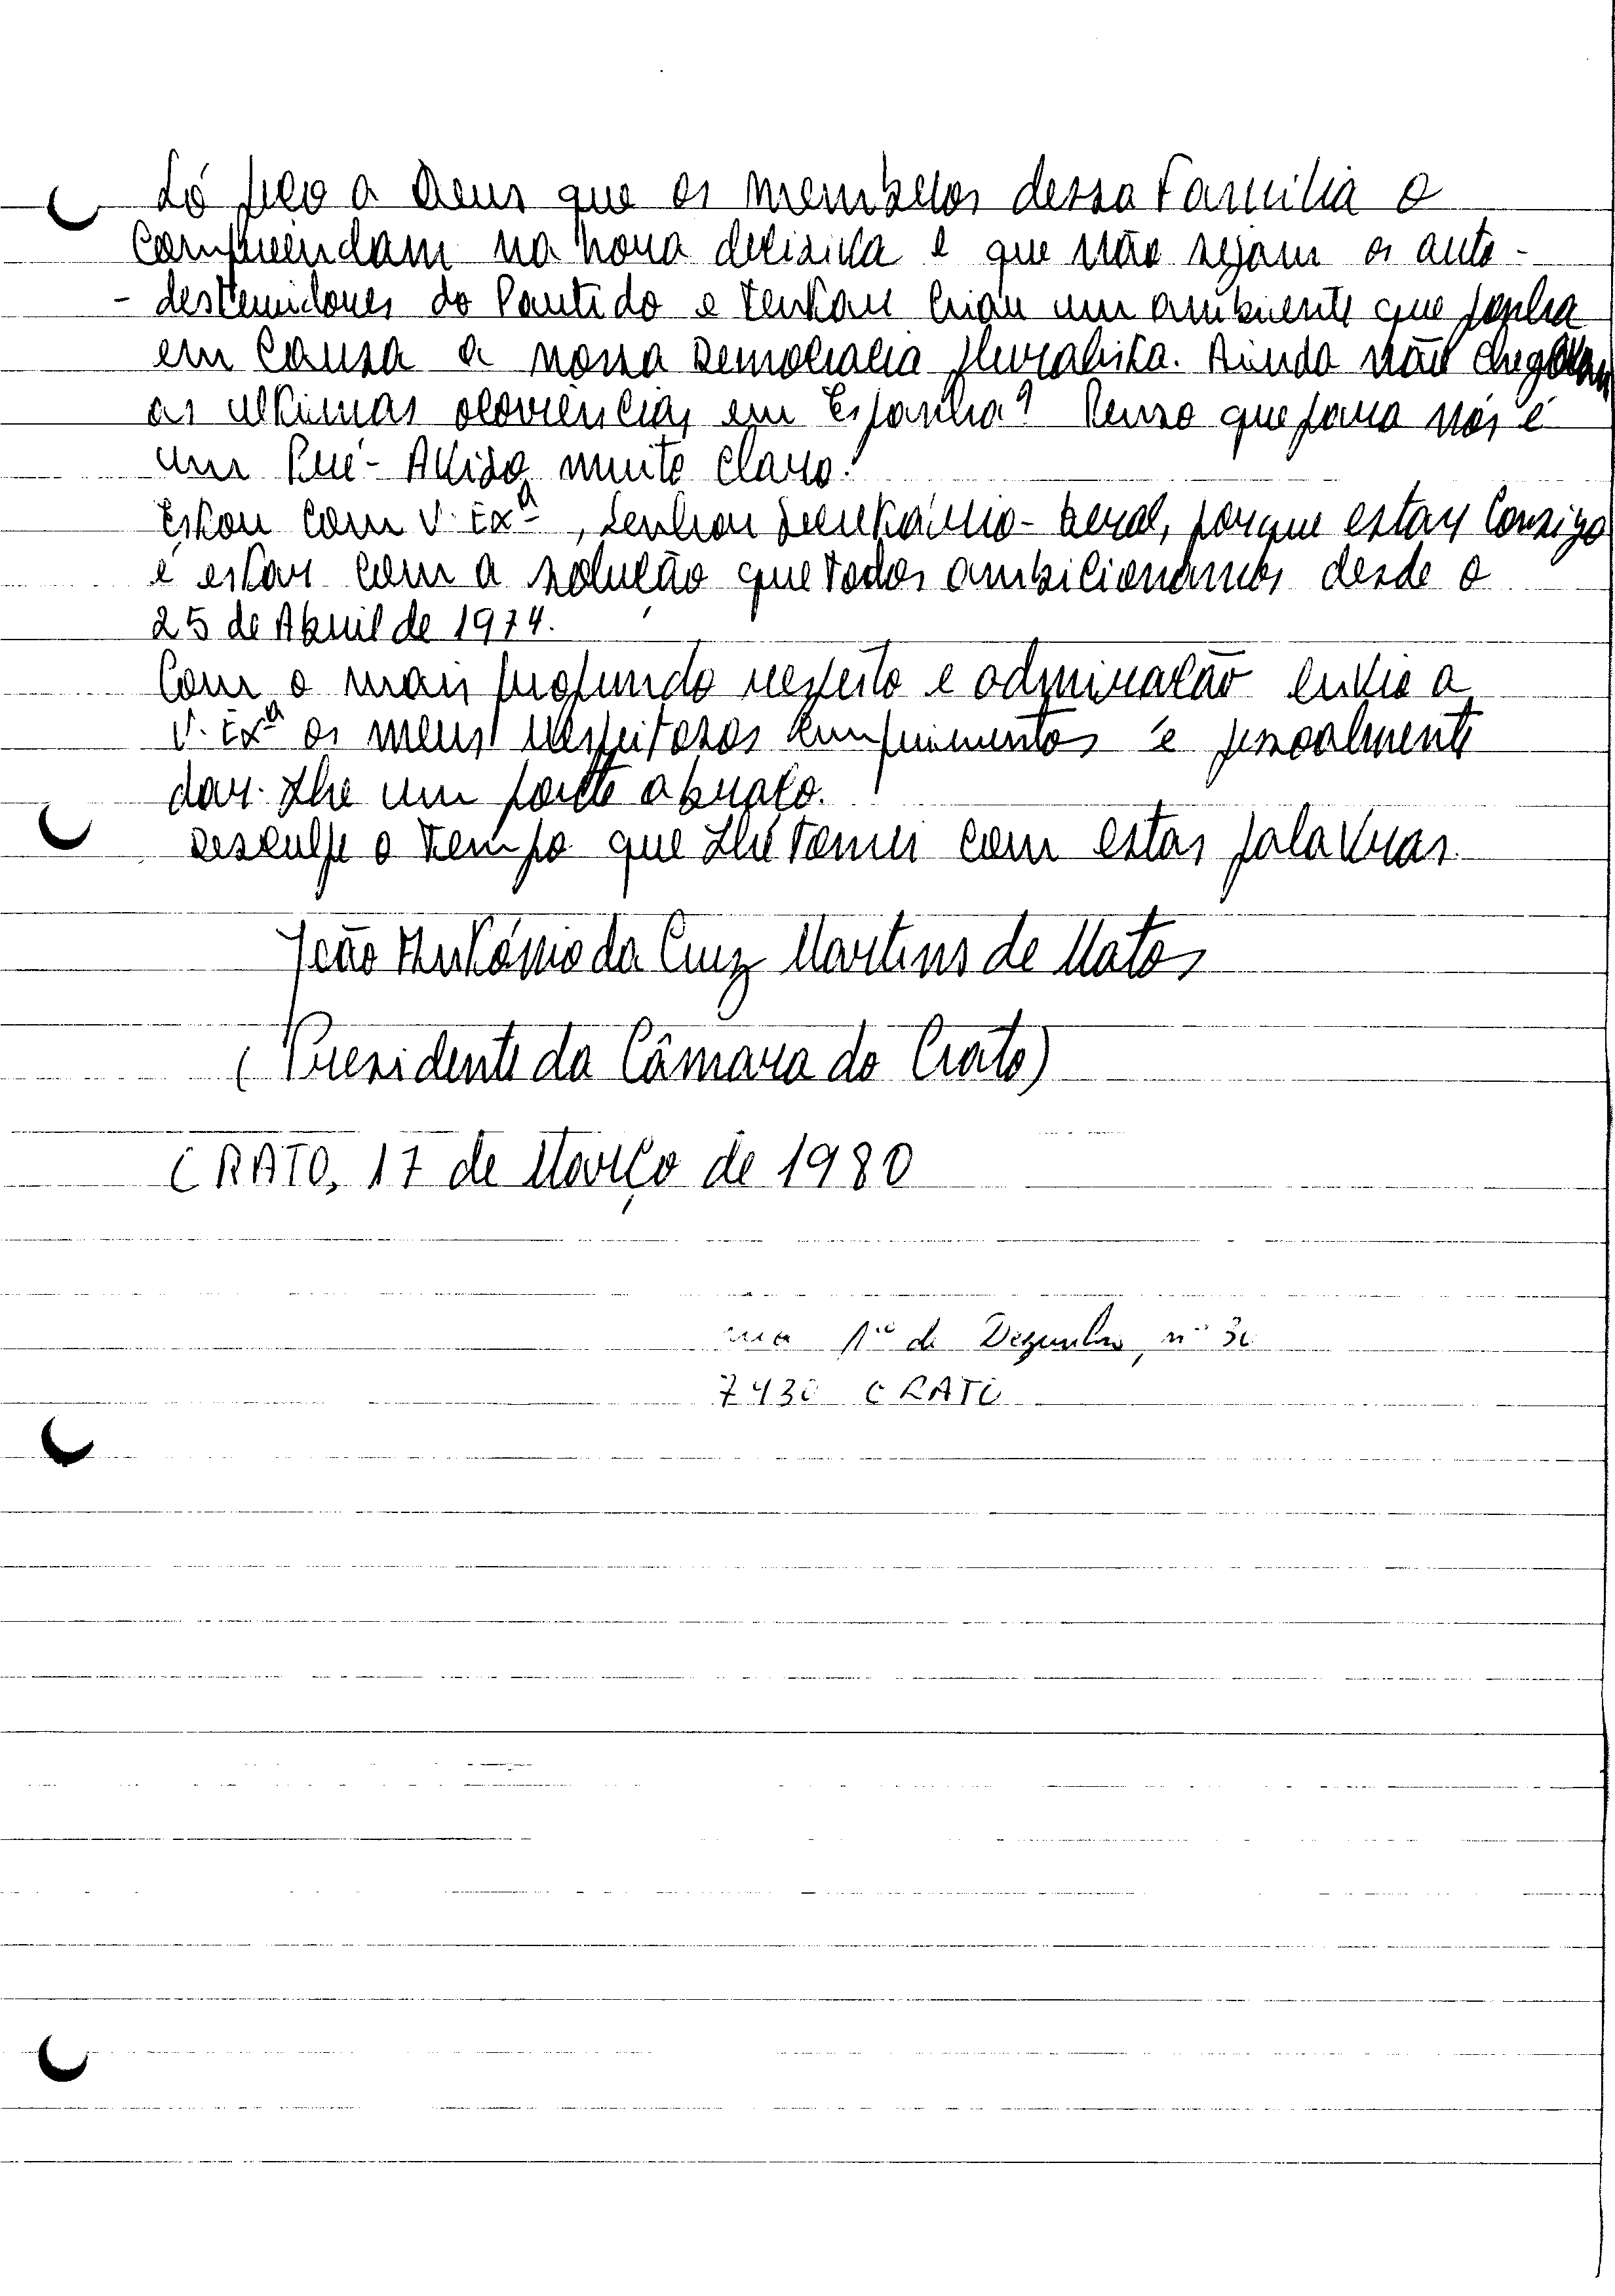 Só peço a Deus que os membros dessa Família o
compreendam na hora decisiva e que não sejam os auto-
- destruidores do Partido e tentar criar um ambiente que ponha
em causa a nossa Democracia pluralista. Ainda não chegaram
as ultimas ocorrências em Espanha? Penso que para nós é
um Pré-Aviso muito claro.
Estou com V. Exª, Senhor Secretário-Geral, porque estar consigo
é estar com a solução que todos ambicionamos desde o
25 de Abril de 1974.
Com o mais profundo respeito e admiração envio a
V. Exª os meus respeitosos cumprimentos e pessoalmente
dar-lhe um forte abraço.
Desculpe o tempo que lhe tomei com estas palavras.
João António da Cruz Martins de Matos
(Presidente da Câmara do Crato)
CRATO, 17 de Março de 1980
rua 1º de Dezembro, nº
7430 CRATO